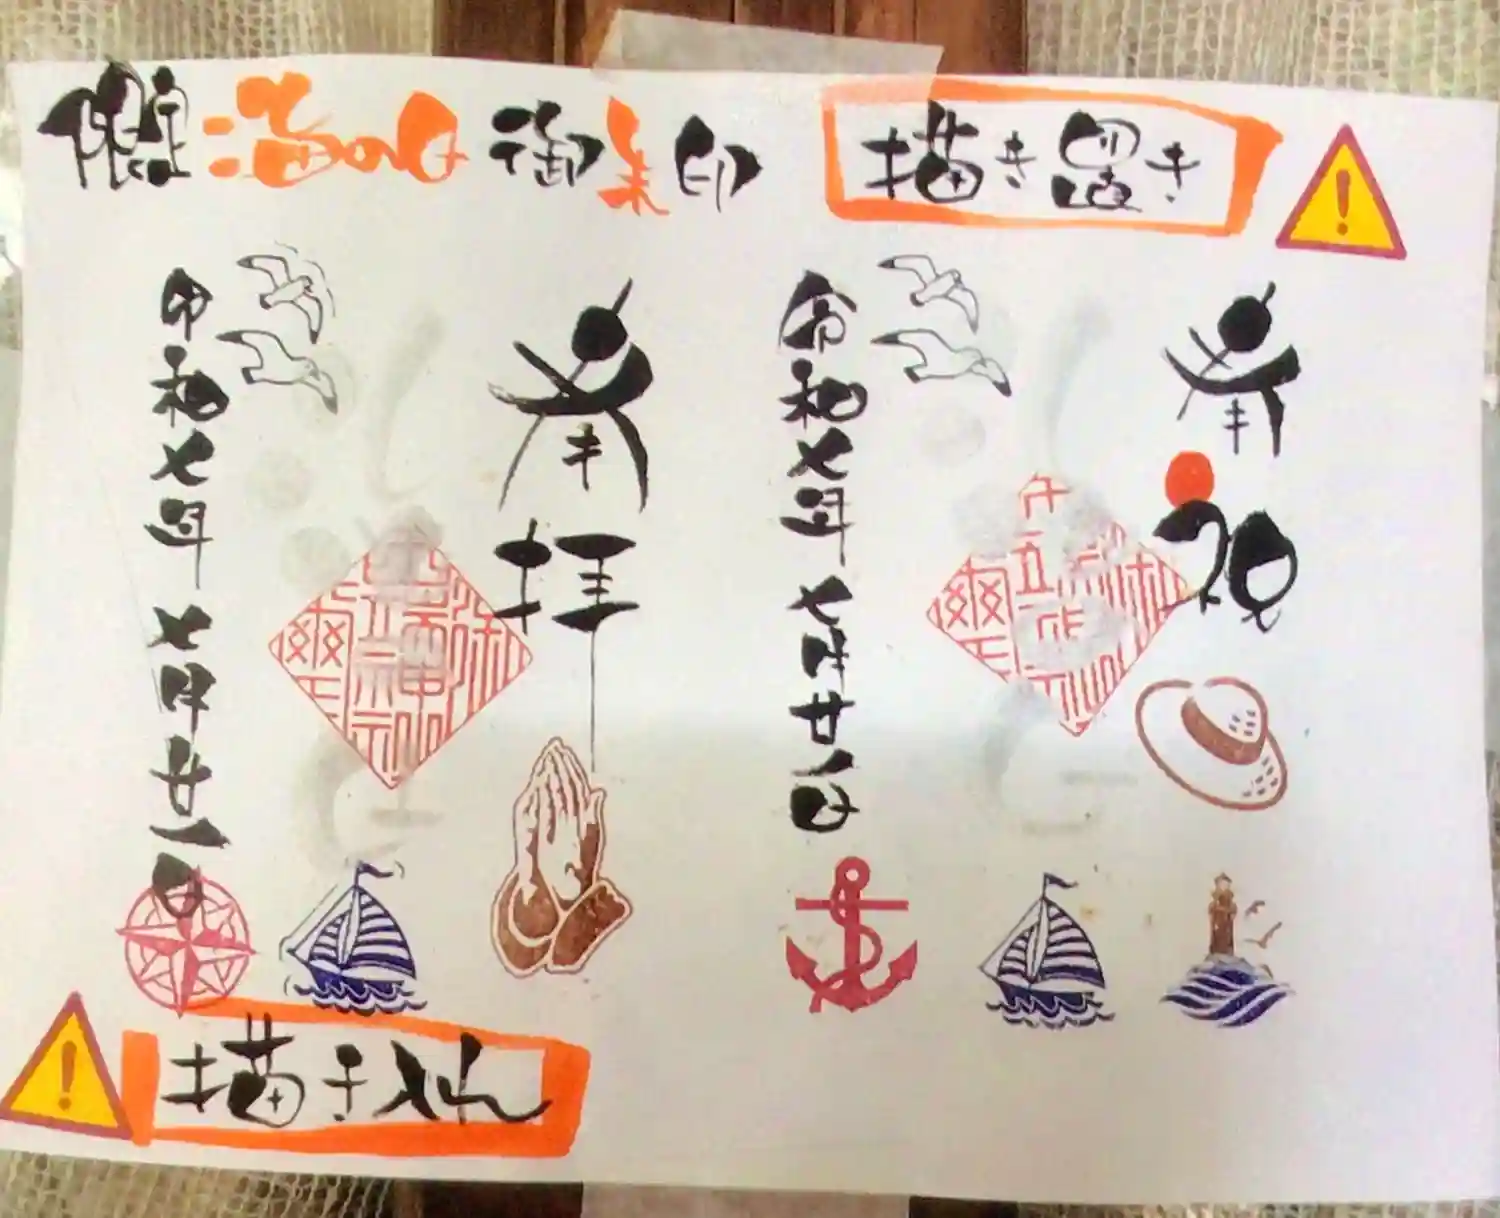 限定 海の日 御朱印
描き置き
奉拝
令和七年 七月廿一日
奉祝
令和七年 七月廿一日
描き入れ